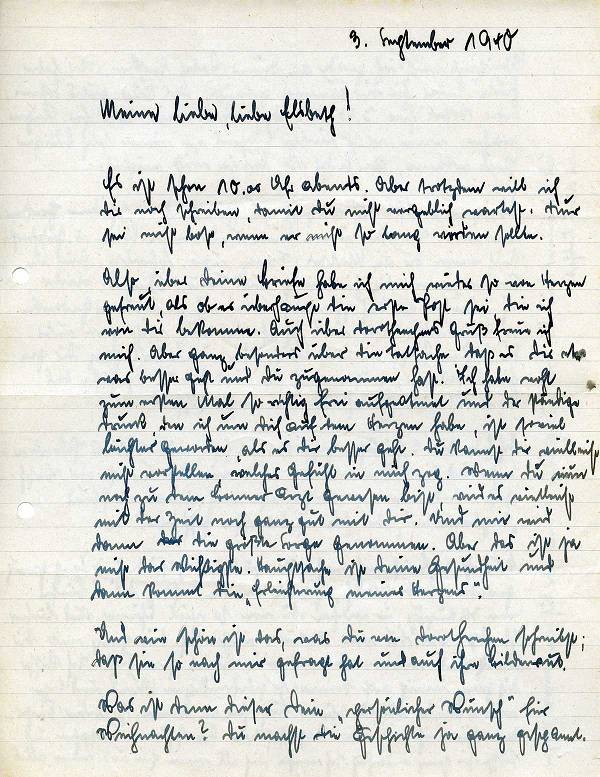 3. September 1940
Meine liebe, liebe Elsbeth!
Es ist schon 10.00 Uhr abends. Aber trotzdem will ich
dir noch schreiben, damit du nicht vergeblich wartest. Nur
sei nicht böse, wenn er nicht so lang werden sollte.
Also, über deine Briefe habe ich mich wieder so von Herzen
gefreut, als ob es überhaupt die erste Post sei, die ich
von dir bekomme. Auch über Dorothechens Gruß freue ich
mich. Aber ganz besonders über die Tatsache daß es dir et-
was besser geht und du zugenommen hast. Ich habe echt
zum ersten Mal so richtig frei aufgeatmet und der ständige
Druck den ich um dich auf dem Herzen habe, ist soviel
leichter geworden, als es dir besser geht. Du kannst dir vielleicht
nicht vorstellen, welches Gefühl in mich zog. Wenn du nun
noch zu dem Arzt gewesen bist, wird es vielleicht
mit der Zeit noch ganz gut mit dir. Und mir wird
dann die größte Sorge genommen. Aber das ist ja
nicht das Wichtigste. Hauptsache ist deine Gesundheit und
dann kommt die „Erleichterung meines Herzens".
Und wie schön ist das, was du von Dorothechen schreibst;
daß sie so nach mir gefragt hat und auch ihre
Was ist denn dieser dein „persönlicher Wunsch" für
Weihnachten? Du machst die Geschichte ja ganz gespannt.